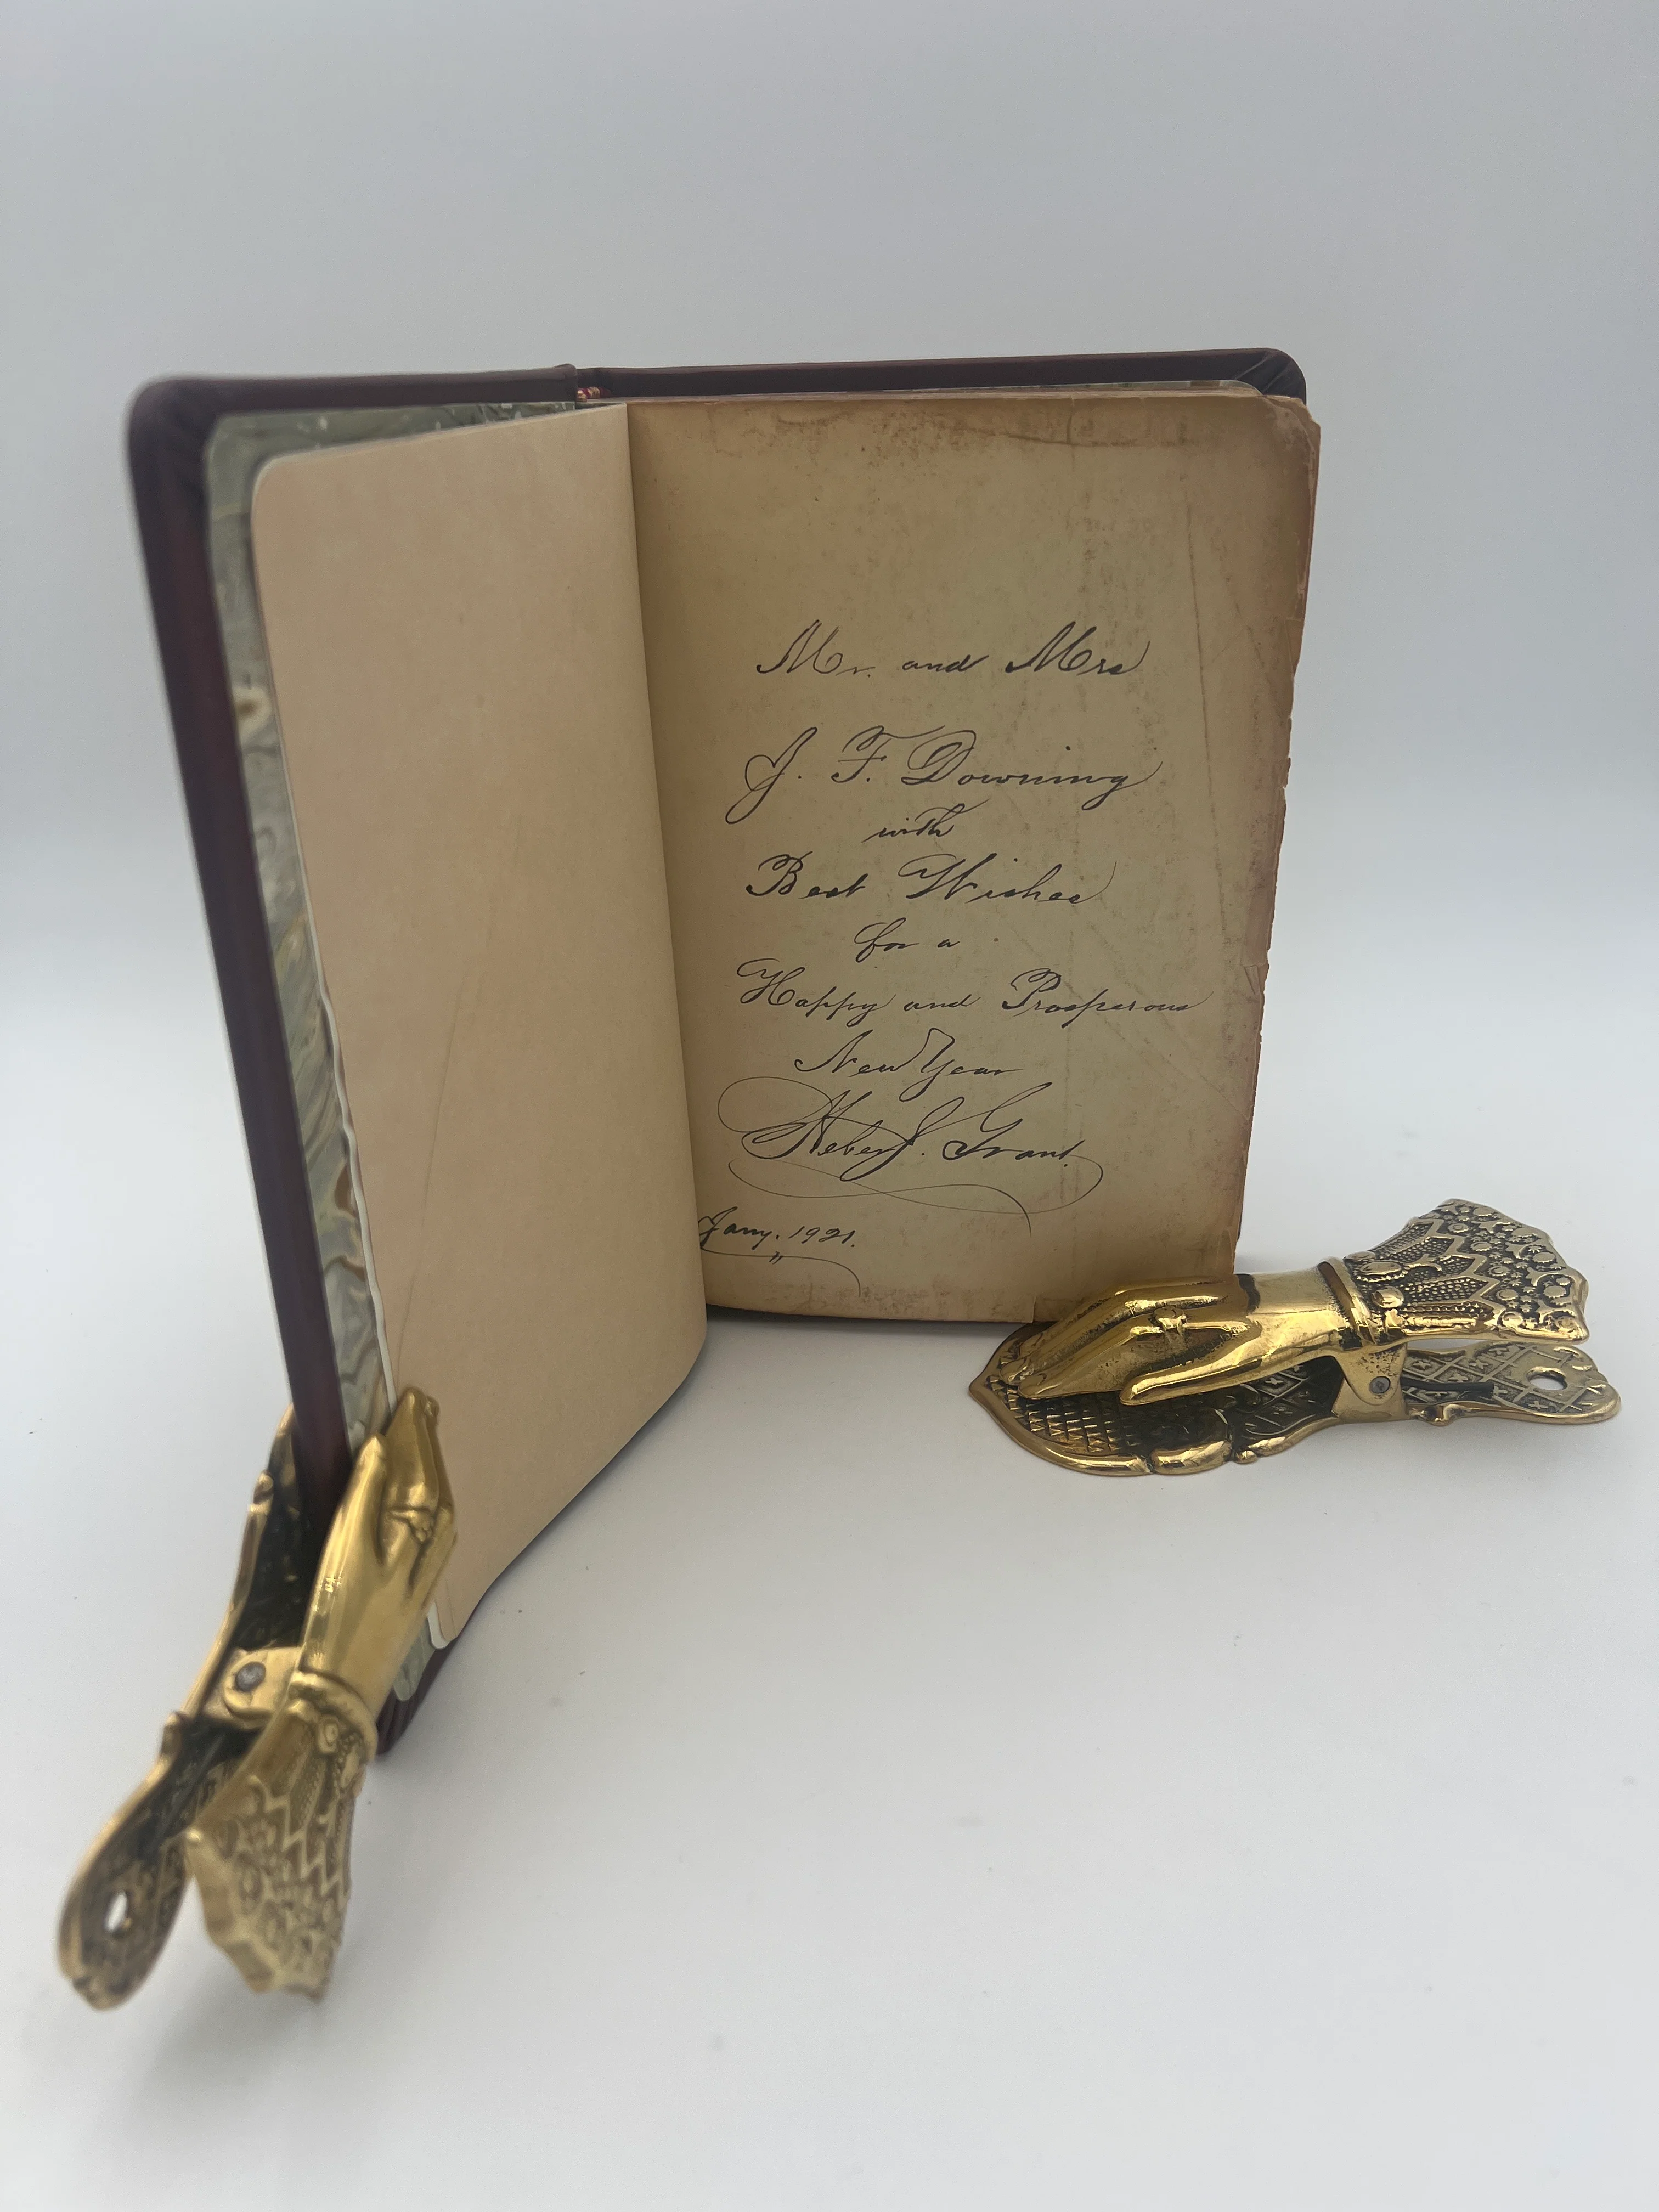 Mr. and Mrs
J. F. Downing
with
Best Wishes
for a
Happy and Prosperous
New Year
Heber J. Grant.
Jany. 1921.